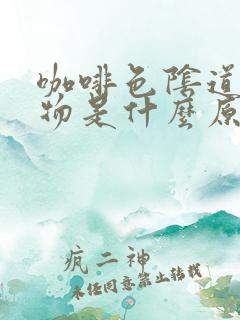 咖啡色陰道
物是什麼原
疯二神
未经同意禁止转载